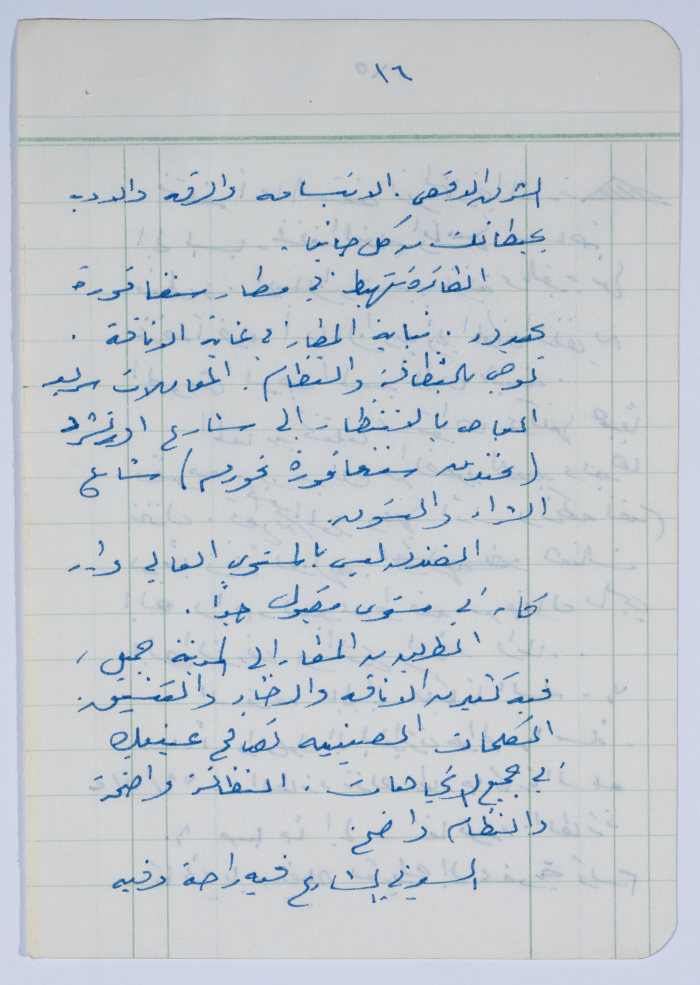 ١٦
الشرق الاقصى. الابتسامه والرقه والادب
يحيطانك من كل جانب.
الطائرة تهبط في مطار سنغافورة
بهدوء. بناية المطار في غاية الاناقة.
توحي بالنظافة والنظام. المعاملات سريعة
الباص بالانتظار الى شارع اورتشرد
(فندق سنغافورة) شارع
الشراء والتسوق.
الفندق ليس بالمستوى العالي وان
كان في مستوى مقبول جداً.
الطريق من المطار الى المدينة جميل،
فيه كثير من الاناقه والخضار والتنسيق.
الكلمات الصينيه تصافح عينيك
في جميع الاتجاهات. النظافة واضحة
والنظام واضح.
السير في الشارع فيه راحة وفيه